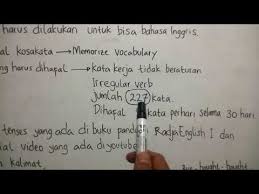 harus dilakukan untuk bisa bahasa Inggris.
al kosakata → Memorize Vocabulary
ng harus dihapal → Kata kerja tidak beraturan
Irregular verb
Jumlah 227 kata.
Dihapal kata perhari selama 30 hari
tenses yang ada di buku RadjaEnglish I dan
al video yang ada di youtube
n kalimat
bought